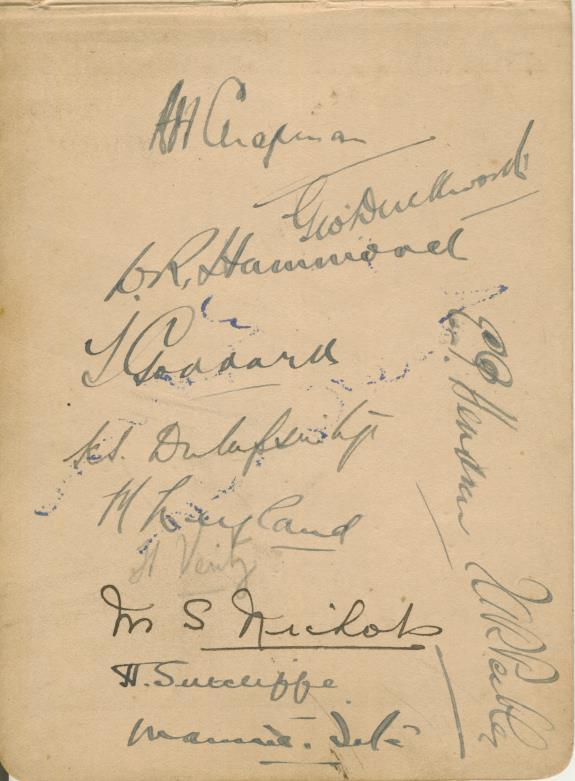 A H Chapman
Geo Duckworth
W. R. Hammond
T Goddard
K.S. Duleepsinhji
M Leyland
H Verity
M S Nichols
H. Sutcliffe.
Maurice. Tate
E. Hendren
I A R Peebles